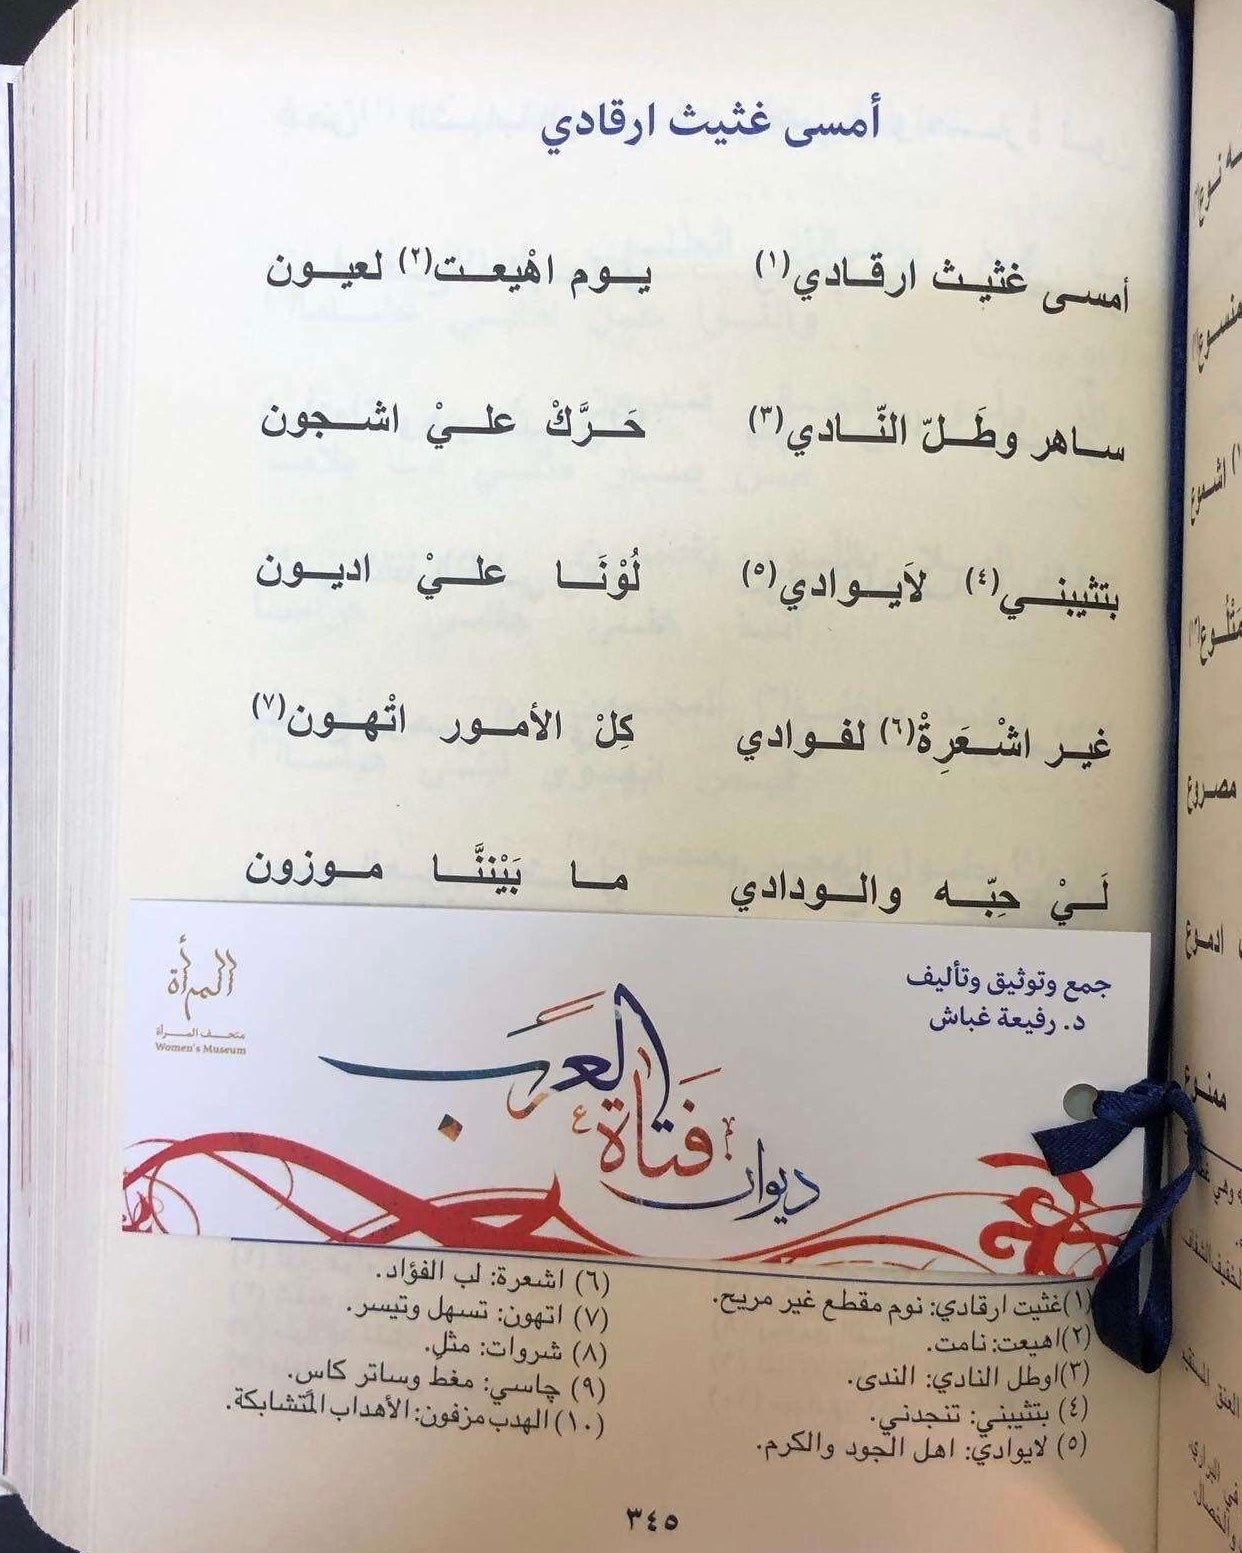 أمسى غثيث ارقادي
أمسى غثيث ارقادي(١) يوم اهْيعت(٢) لعيون
ساهر وطَلّ النّادي(٣) حَرَّكْ عليْ اشجون
بتثيبني(٤) لاَيوادي(٥) لُوْنَا عليْ اديون
غير اشْعَرِةْ(٦) لفوادي كِلْ الأمور اتْهون(٧)
لَيْ حِبّه والودادي ما بَيْننَّا موزون
المرأة
متحف المرأة
Women's Museum
جمع وتوثيق وتأليف
د. رفيعة غباش
ديوان فتاة العرب
(١)غثيت ارقادي: نوم مقطع غير مريح.
(٢)اهيعت: نامت.
(٣)اوطل النادي: الندى.
(٤) بتثيبني: تنجدني.
(٥) لايوادي: اهل الجود والكرم.
(٦) اشعرة: لب الفؤاد.
(٧) اتهون: تسهل وتيسر.
(٨) شروات: مثل.
(٩) چاسي: مغط وساتر كاسٍ.
(١٠)الهدب مزفون: الأهداب المتشابكة.
٣٤٥
منسوع
اشموع
مصروع
ادموع
ممنوع